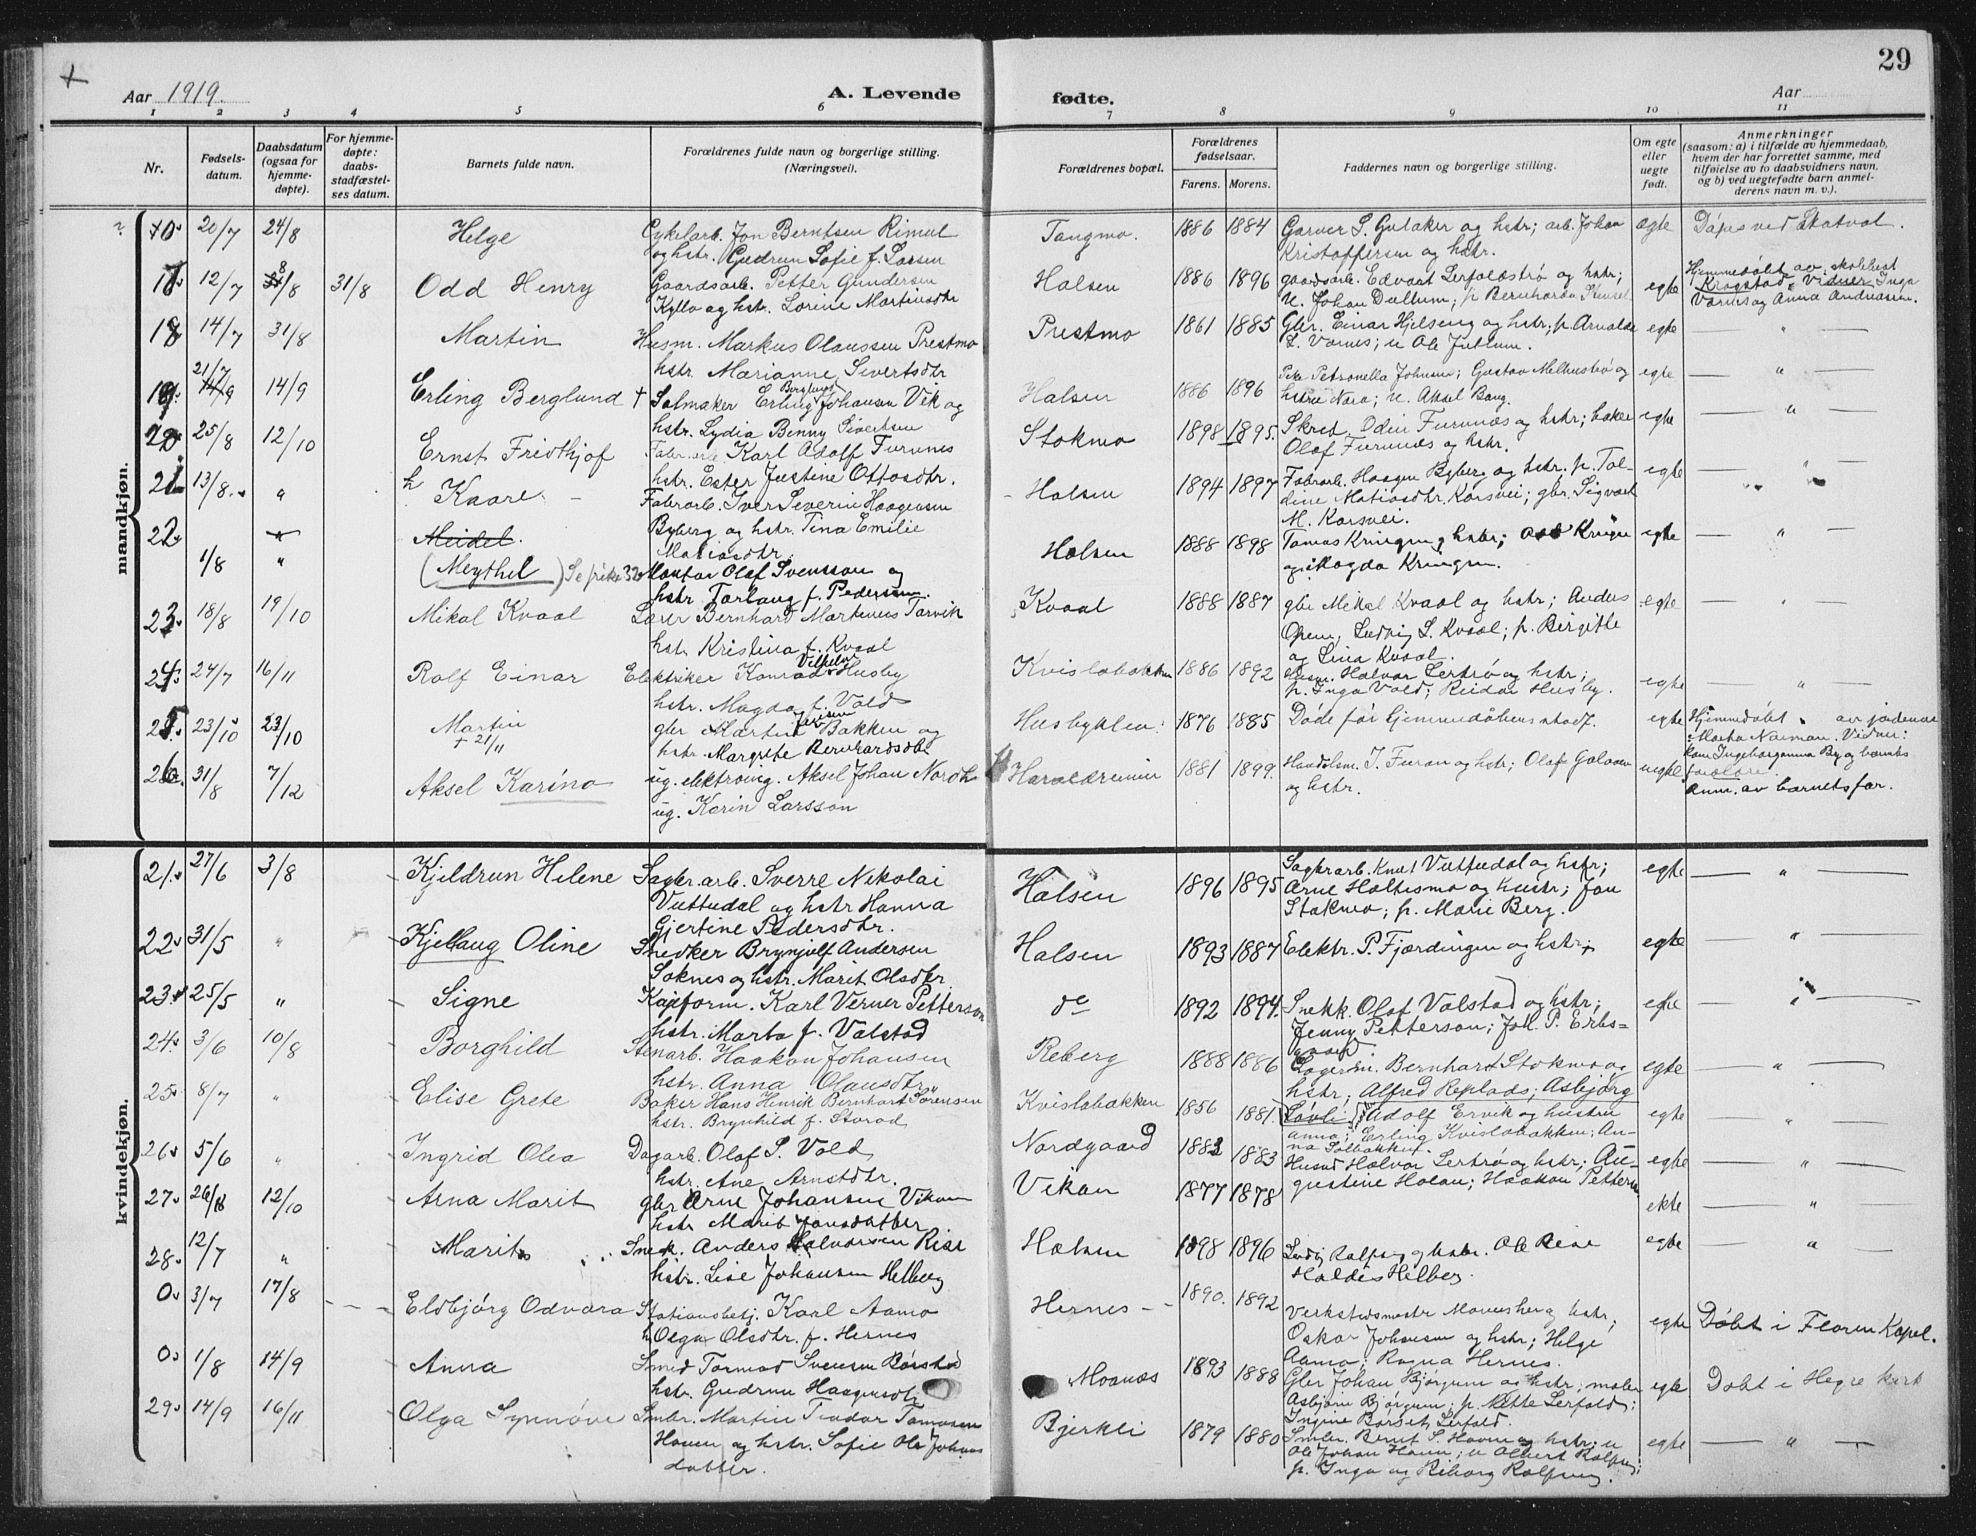 29
Aar 1919. A. Levende fødte. Aar
1 2 3 4 5 6 7 8 9 10 11
Nr.
Fødsels-
datum.
Daabsdatum
(ogsaa for
hjemme-
døpte).
For hjemme-
døpte:
daabs-
stadfæstel-
ses datum.
Barnets fulde navn.
Forældrenes fulde navn og borgerlige stilling.
(Næringsvei).
Forældrenes bopæl.
Forældrenes
fødselsaar.
Farens. Morens.
Faddernes navn og borgerlige stilling.
Om egte
eller
uegte
født.
Anmerkninger
(saasom: a) i tilfælde av hjemmedaab,
hvem der har forrettet samme, med
tilføielse av to daabsvidners navn.
og b) ved uegtefødte barn anmel-
derens navn m. v.).
mandkjøn.
20/7 24/8 Helge
Cykelarb. Jon Berntsen Rimul
og hstr. Gudrun Sofie f. Lassen
Tangmo. 1886 1884
Garver S. Gulaker og hstr; arb. Johan
Kristoffersen og hstr.
egte Døpt ved Skatval.
17 12/7 31/8 Odd Henry
Gaardsarb. Petter Gundersen
Kyllo og hstr. Lorine Martinsdtr
Halsen 1886 1896
gaardsarb. Edvart Lerfaldstrø og hstr;
u. Johan Dullum; p. Bernharda
egte
Hjemmedøbt av
Krogstad. Vidner Inga
Værnes og Anna Andreasen.
18 14/7 31/8 Martin
Husm. Markus Olaussen Prestmo
hstr. Marianne Sivertsdtr
Prestmo 1861 1885
Gbr. Einar Hjelseng og hstr; p. Arnalda
L. Værnes; u Ole Jullum.
egte — " —
19 21/7 14/9 Erling Berglund +
Salmaker Erling Berglund Johansen Vik og
hstr. Lydia Benny Sivertsen
Halsen 1886 1896
Pike Petronella Johnsen; Gustav Melhustrø og
hstru Nora; u. Aksel Bang.
egte — " —
20 25/8 12/10 Ernst Fridthjof
Karl Adolf Furunes
hstr. Ester Justine Ottosdtr.
Stokmo 1898 1895.
Skred. Odin Furunæs og hstr; baker
Olaf Furunæs og hstr.
egte — " —
21 13/8 " Kaare
Fabrarb. Iver Severin Haagensen
Byberg og hstr. Tina Emilie
Matiasdtr.
Halsen 1894 1897
Fabrarb. Haagen Byberg og hstr. p. Tal-
dine Matiasdtr. Korsvei; gbr. Sigvart
M. Korsvei.
egte — " —
22 1/8 " Meidel.
(Meythel) Se pike 32
Kantor Olaf Svensson og
hstr Torlaug f. Pedersen.
Halsen 1888 1898
Tomas Kringen og hstr; Kringen
og Magda Kringen.
egte — " —
23 18/8 19/10 Mikal Kvaal
Lærer Bernhard Markenes Tarvik
hstr Kristina f. Kvaal
Kvaal 1888 1887
gbr Mikal Kvaal og hstr; Anders
Opem, Ludvig L. Kvaal; p. Birgitte
og Lina Kvaal.
egte — " —
24 24/7 16/11 Rolf Einar
Elektriker Konrad Vilhelm Husby
hstr. Magda f. Vold
Kvislabakken 1886 1892
Husm. Halvar Lertrø og hstr;
p. Inga Vold; Reidar Husby.
egte — " —
25. 23/10 23/10 Martin
+ 21/11
gbr Martin Bakken og
hstr. Margrete Bernhardsdtr
Husbyklev 1876 1885
Døde før hjemmedåbens stadf.
egte
Hjemmedøbt av jordemor
Marta Naiman. Vidner:
Ingeborganna By og barnets
forældre.
26. 31/8 7/12 Aksel Karino
ug. elektromg. Aksel Johan Nordh
ug. Karin Larsson
Haraldreinen 1881 1899.
Handelsm. I. Furan og hstr; Olaf Galaaen
og hstr.
uegte
Anm. av barnets far.
kvindekjøn.
21. 27/6 3/8 Kjeldrun Helene
Sagbr.arb. Sverre Nikolai
Vuttudal og hstr Hanna
Gjertine Pedersdtr.
Halsen 1896 1895
Sagbrarb. Knut Vuttudal og hstr;
Arne Haltismo og hustr; Jon
Stokmo; p. Marie Berg.
egte — " —
22. 31/5 " Kjellaug Oline
Snedker Brynjulf Andersen
Soknes og hstr. Marit Olsdtr.
Halsen 1893 1887
Elektr. P. Fjærdingen og hstr;
egte — " —
23. 25/5 " Signe
Karl Verner Petterson
hstr. Marta f. Valstad
do 1892 1894.
Snekk. Olaf Valstad og hstr;
Jenny Petterson; Joh. P. Erbs-
gaard
egte — " —
24. 3/6 10/8 Borghild
Stenarb. Haakon Johansen
hstr. Anna Olausdtr.
Reberg 1888 1886
Lagerm. Bernhard Stokmo og
hstr; Alfred Replads; Asbjørg
Løvli
egte — " —
25. 8/7 " Elise Grete
Baker Hans Henrik Bernhart Sørensen
hstr. Brynhild f. Storød
Kvislabakken 1856 1881.
Adolf Ervik og hustru
Anna; Erling Kvislabakken; An-
na Solbakken.
egte — " —
26. 5/6 " Ingrid Olea
Dagarb. Olaf P. Vold
hstr. Ane Arnstdtr.
Nordgaard 1883 1883
Husmd Halvar Lertrø og hstr; Au-
gustine Holan; Haakon Petterson
egte — " —
27. 26/8 12/10 Arna Marit
gbr Arne Johansen Vikan
hstr Marit Jonsdatter
Vikan 1877 1878
ekte — " —
28. 12/7 " Marit
Snek. Anders Halvorsen Rise
hstr. Lise Johansen Helberg
Halsen 1898 1896
Ludvig Ralfsen og hstr. Ole Reise
Haldis Helberg.
egte — " —
0. 3/7 17/8 - - - Eldbjørg Odvara
Stationsbetj. Karl Aamo
h. Olga Olsdtr. f. Hernes
Hernes - - 1890. 1892
Verkstedsmestr Mavenshei og hstr;
Oskar Johansen og hstr; Helge
Aamo; Ragna Hernes.
egte Døbt i Floren Kapel.
0. 1/8 14/9 Anna
Smed Tormod Svensen Børstad
hstr. Gudrun Haagensdtr
Moanes 1893 1888
Gbr Johan Bjørgum og hstr; maler
Asbjørn Bjørgum; p. Mette Lerfald;
Ingine Borset Lerfald.
egte Døbt i Hegre kirk
29. 14/9 16/11 Olga Synnøve
Smbr. Martin Teodor Tomasen
Haven og hstr. Sofie Ole Johans
datter.
Bjerkli 1879 1880
Smbr. Bernt S. Haven og hstr; u
Ole Johan Haven; u Albert Ralfsen;
p. Inga og Riborg Ralfsen.
egte — " —